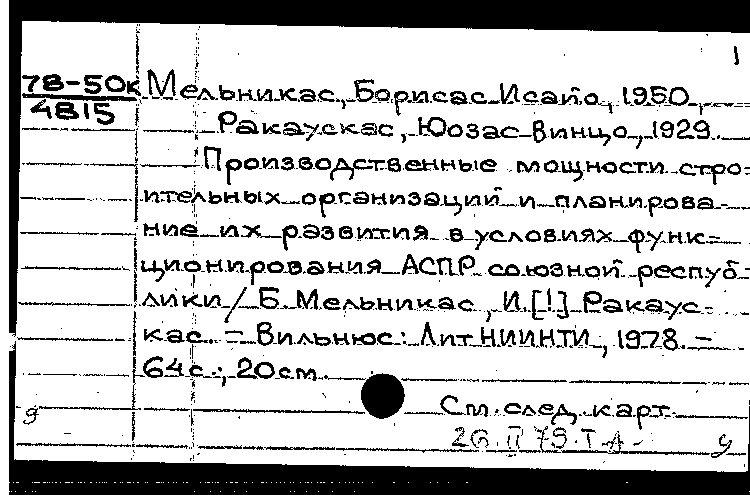 1
78-50к Мельникас, Борисас Исайо, 1950,
4815
Ракаускас, Юозас Винцо, 1929.
Производственные мощности стро-
ительных организаций и планирова-
ние их развития в условиях функ-
ционирования АСПР союзной респуб-
лики / Б. Мельникас, И. [!] Ракаус-
кас. – Вильнюс: ЛитНИИНТИ, 1978. –
64 с.; 20 см.
См. след. карт.
26.II 79. Т. А.